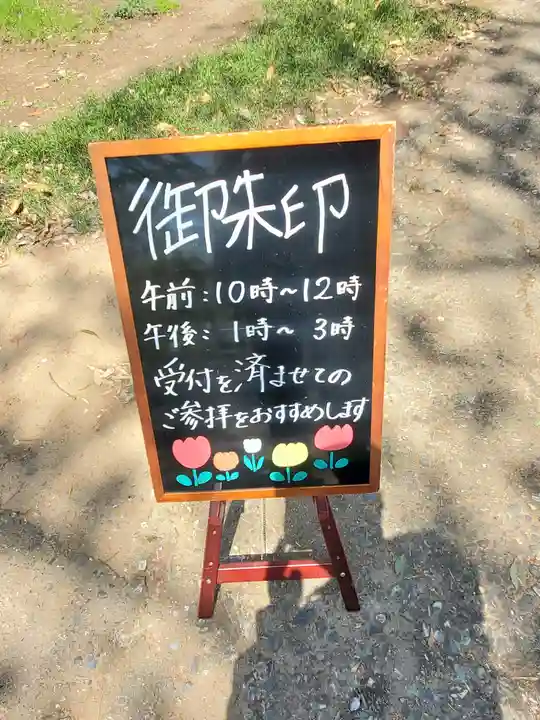 御朱印
午前:10時～12時
午後: 1時～ 3時
受付を済ませての
ご参拝をおすすめします